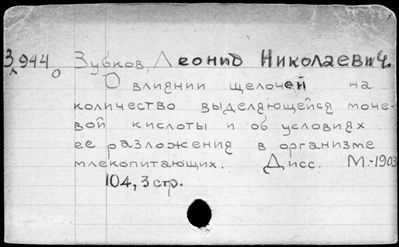 3944 Зубков, Леонид Николаевич.
О влиянии щелочей на
количество выделяющейся моче-
вой кислоты и об условиях
ее разложения в организме
млекопитающих. Дисс. М.-1903
104, 3 стр.